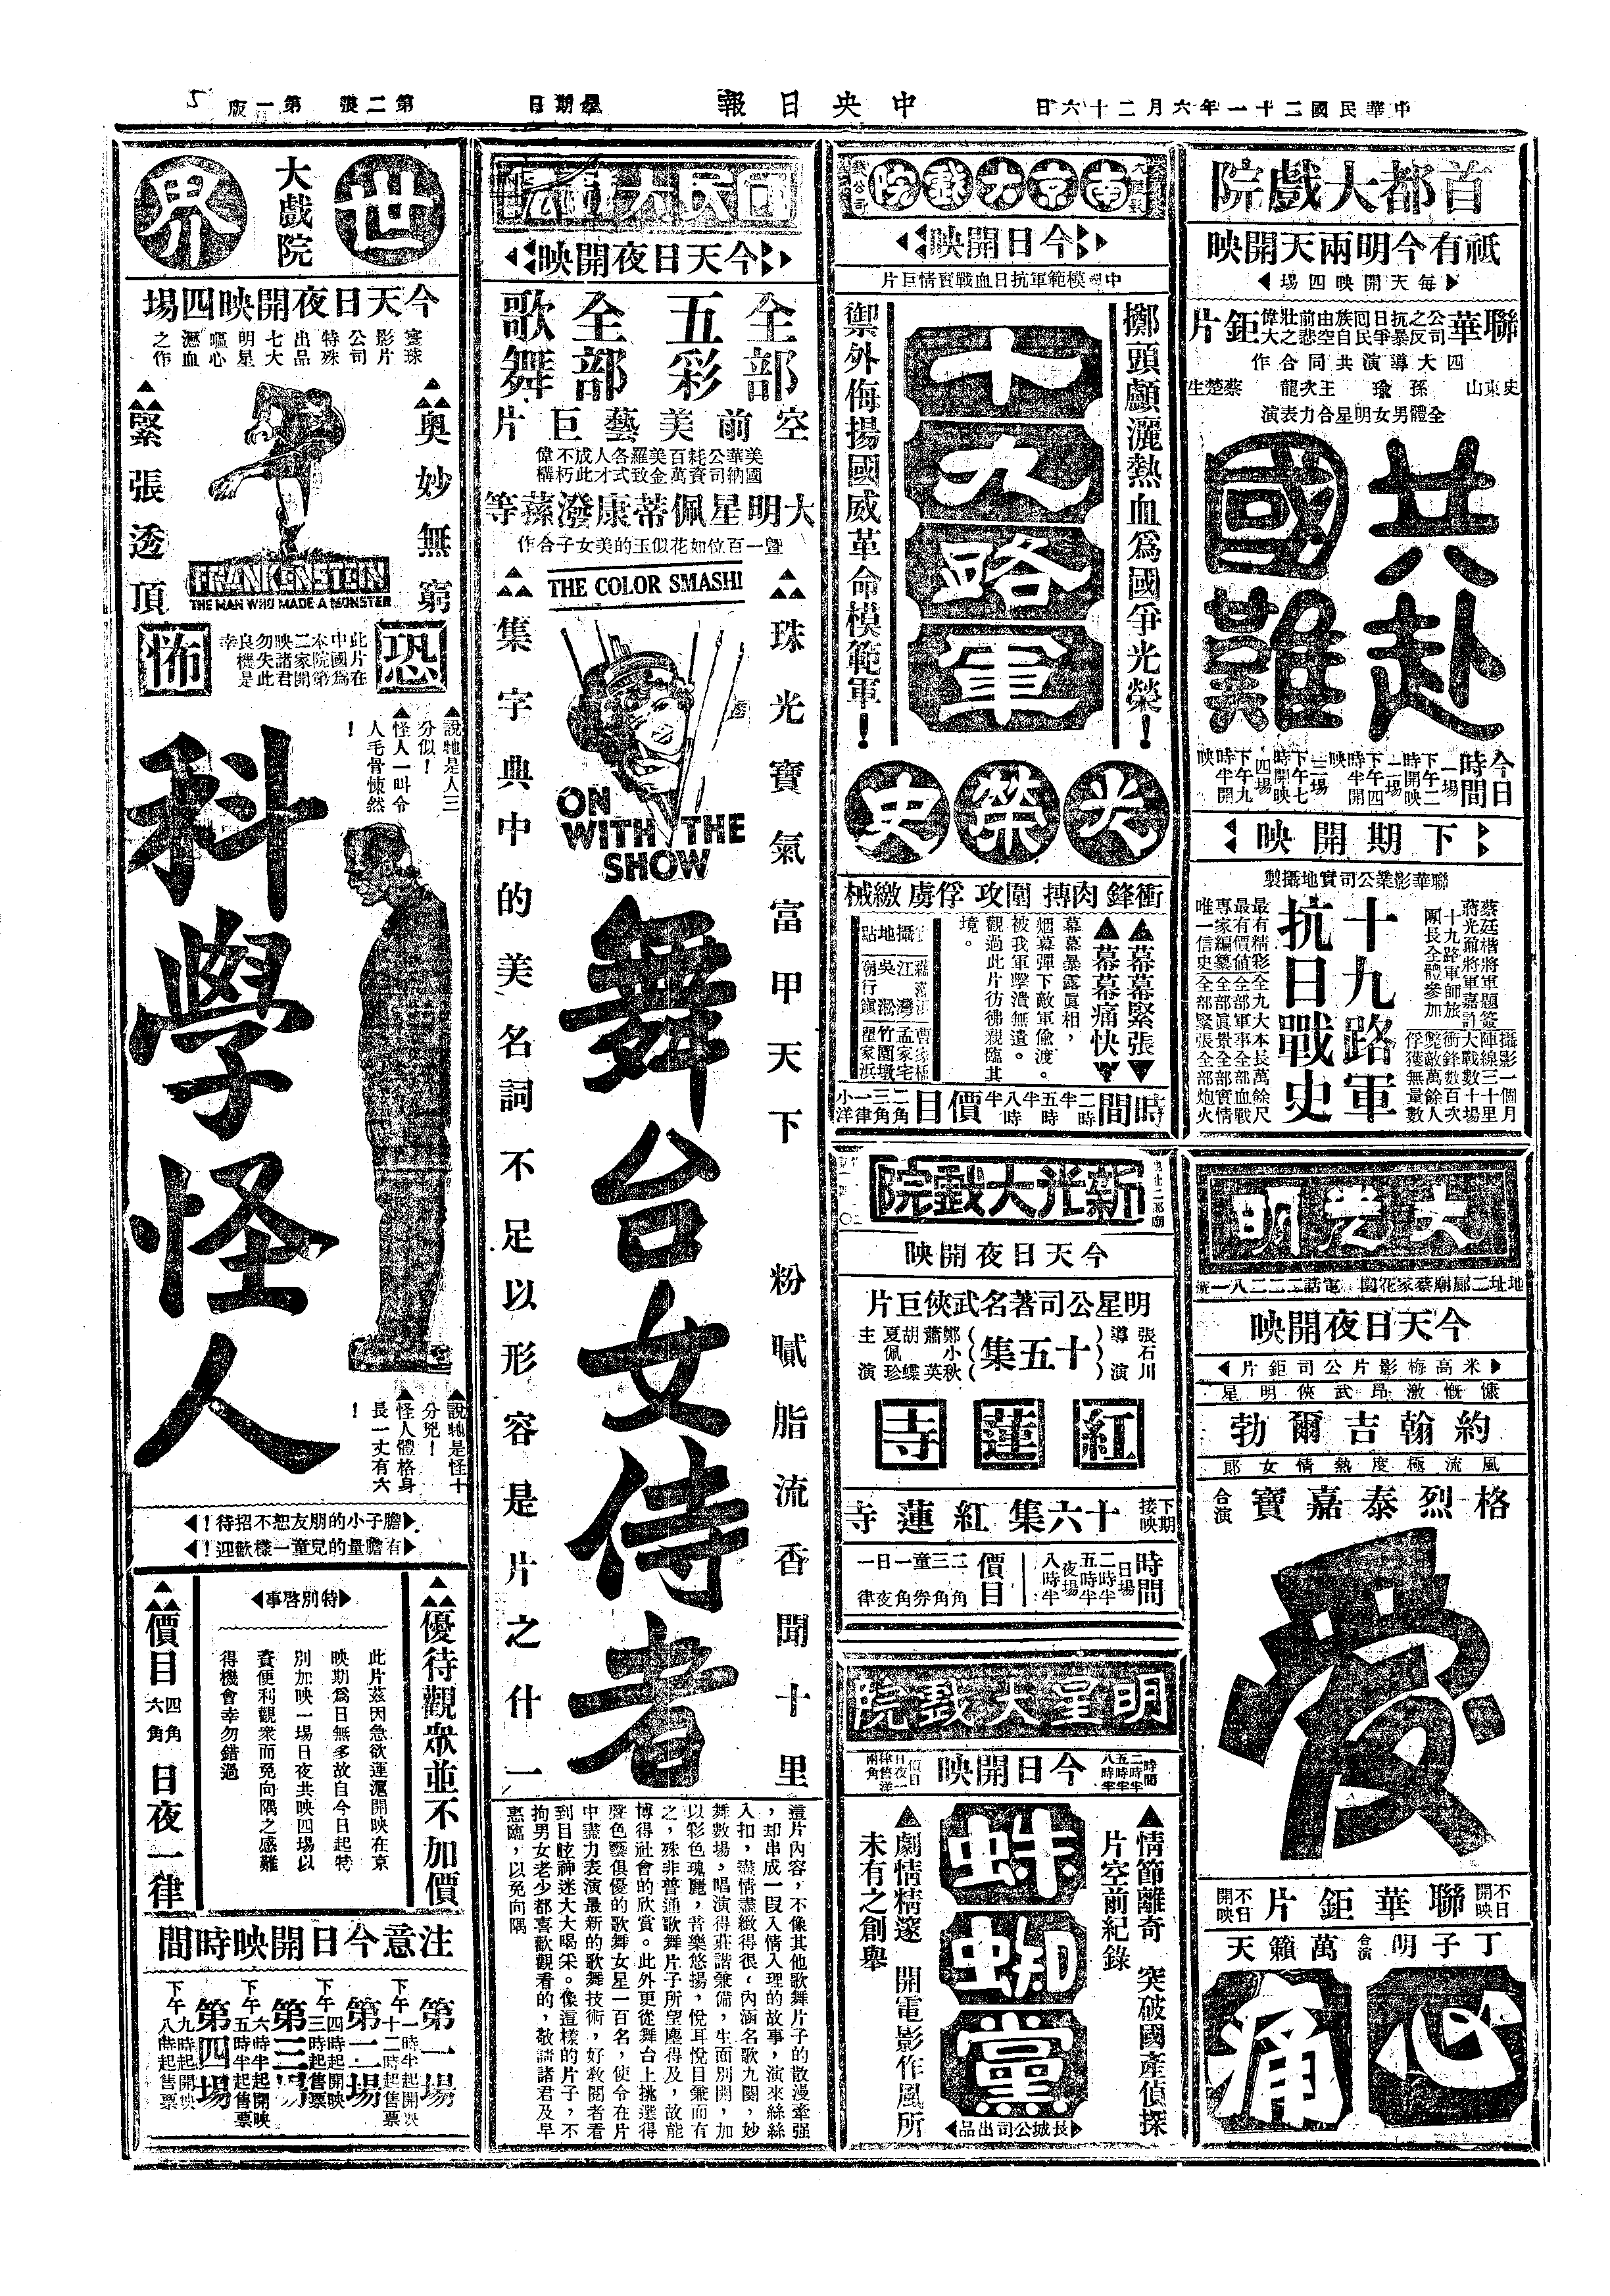 中華民國二十一年六月二十六日
中央日報
星期日
第二張 第一版
首都大戲院
祇有今明兩天開映
每天開映四場
聯華公司之反抗暴日爭回民族自由空前悲壯之偉大鉅片
四大導演共同合作
史東山 孫瑜 王次龍 蔡楚生
全體男女明星合力表演
共赴
國難
今日時間
一場下午二時開映
二場下午四時半開映
三場下午七時開映
四場下午九時半開映
下期開映
聯華影業公司實地攝製
蔡廷楷將軍題簽
蔣光鼐將軍嘉許
十九路軍師旅團長全體參加
十九路軍
抗日戰史
攝影一個月
陣線三十里
大戰數十場
衝鋒數百次
斃敵萬餘人
俘獲無量數
最有精彩全九大本長萬餘尺
最有價值全部軍事全部血戰
專家編纂全部眞景全部實情
唯一信史全部緊張全部炮火
南京大戲院
今日開映
中國模範軍抗日血戰實情巨片
擲頭顱灑熱血爲國爭光榮！
十九路軍
禦外侮揚國威革命模範軍！
光榮史
衝鋒 肉搏 圍攻 俘虜 繳械
幕幕緊張
幕幕痛快
幕幕暴露眞相，
烟幕彈下敵軍偸渡。
被我軍擊潰無遺。
觀過此片彷彿親臨其境。
攝地點
江灣 吳淞 朝行鎭
孟家宅 竹園墩 翟家浜
時間 二時半 五時半 八時半
價目 二角 三角 一律 小洋
大光明
地址二郎廟蔡家花園 電話二二二八一號
今天日夜開映
米高梅影片公司鉅片
慷慨激昂武俠明星
約翰吉爾勃
風流極度熱情女郎
格烈泰嘉寶 合演
愛
不日開映 聯華鉅片 不日開映
丁子明 合演 萬籟天
心痛
新光大戲院
今天日夜開映
明星公司著名武俠巨片
張石川導演
十五集
鄭小秋 蕭英 胡蝶 夏佩珍 主演
紅蓮寺
下期接映 十六集紅蓮寺
時間 日場 二時半 五時半 夜場 八時半
價目 二角 三角 童券一角 日夜一律
明星大戲院
時間 二時半 五時半 八時半
今日開映
價目日夜一律售洋兩角
情節離奇 突破國產偵探片空前紀錄
蛛蜘黨
劇情精邃 開電影作風所未有之創舉
長城公司出品
國民大戲院
今天日夜開映
全部五彩
全部歌舞
空前美藝巨片
美國華納公司耗資百萬美金羅致各式人才成此不朽偉構
大明星佩蒂康潑蓀等
曁一百位如花似玉的美女子合作
THE COLOR SMASH!
ON
WITH THE
SHOW
珠光寶氣富甲天下 粉膩脂流香聞十里
舞台女侍者
集字典中的美名詞不足以形容是片之什一
這片內容，不像其他歌舞片子的散漫牽强，却串成一段入情入理的故事，演來絲絲入扣，盡情盡緻得很，內涵名歌九闋，妙舞數場，唱演得莊諧兼備，生面別開，加以彩色瑰麗，音樂悠揚，悅耳悅目兼而有之，殊非普通歌舞片子所望塵得及，故能博得社會的欣賞。此外更從舞台上挑選得聲色藝俱優的歌舞女星一百名，使令在片中盡力表演最新的歌舞技術，好敎閱者看到目眩神迷大大喝采。像這樣的片子，不拘男女老少都喜歡觀看的，敬請諸君及早惠臨，以免向隅
世界
大戲院
今天日夜開映四場
寰球影片公司特殊出品七大明星嘔心瀝血之作
奧妙無窮
緊張透頂
FRANKENSTEIN
THE MAN WHO MADE A MONSTER
恐怖
此片在中國爲本院第二家開映諸君勿失此良機是幸
說牠是人三分似！
怪人一叫令人毛骨悚然！
科學怪人
說牠是怪十分兇！
怪人體格身長一丈有六！
膽子小的朋友恕不招待！
有膽量的兒童一樣歡迎！
優待觀衆並不加價
特別啓事
此片茲因急欲運滬開映在京
映期爲日無多故自今日起特
別加映一場日夜共映四場以
資便利觀衆而免向隅之感難
得機會幸勿錯過
價目 四角 六角 日夜一律
注意今日開映時間
第一場 下午一時半起開映 十二時起售票
第二場 下午四時起開映 三時起售票
第三場 下午六時半起開映 五時半起售票
第四場 下午九時起開映 八時起售票